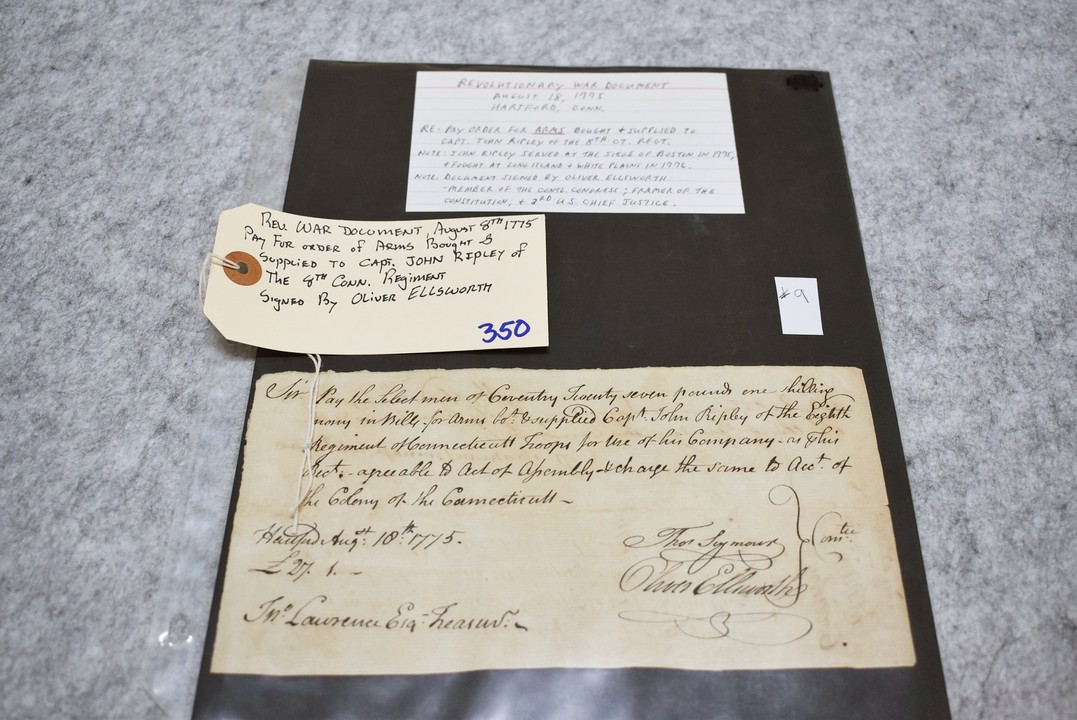 REVOLUTIONARY WAR DOCUMENT
AUGUST 18, 1775
HARTFORD, CONN.
RE: PAY ORDER FOR ARMS BOUGHT & SUPPLIED TO
CAPT. JOHN RIPLEY OF THE 8TH CT. REGT.
NOTE: JOHN RIPLEY SERVED AT THE SIEGE OF BOSTON IN 1775,
& FOUGHT AT LONG ISLAND & WHITE PLAINS IN 1776.
NOTE: DOCUMENT SIGNED BY OLIVER ELLSWORTH
-MEMBER OF THE CONTL. CONGRESS; FRAMER OF THE
CONSTITUTION; & 2RD U.S. CHIEF JUSTICE.
REV. WAR DOCUMENT, August 8TH 1775
PAY FOR ORDER of ARMS Bought &
SUPPLIED TO CAPT. JOHN RIPLEY of
THE 8TH CONN. Regiment
Signed By OLIVER ELLSWORTH
350
#9
Sir Pay the Select men of Coventry Twenty seven pounds one shilling
mony in Bills for Arms bot. & supplied Capt. John Ripley of the Eighth
Regiment of Connecticutt Troops for Use of his Company - as this
Rect. - agreable to Act of Assembly & charge the same to Acct. of
the Colony of the Connecticutt -
Hartford Augst. 18th. 1775.
£27. 1. -
Thos Seymour
Oliver Ellsworth
Comtee.
Jno. Lawrence Esq. Treasurr.